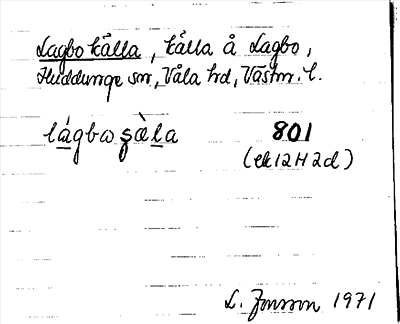 Lagbo källa, källa å Lagbo,
Huddunge sn, Våla hd, Västm. l.
lágbω ʂæ̀la 801
(ek 12H2d)
L. Jonsson 1971